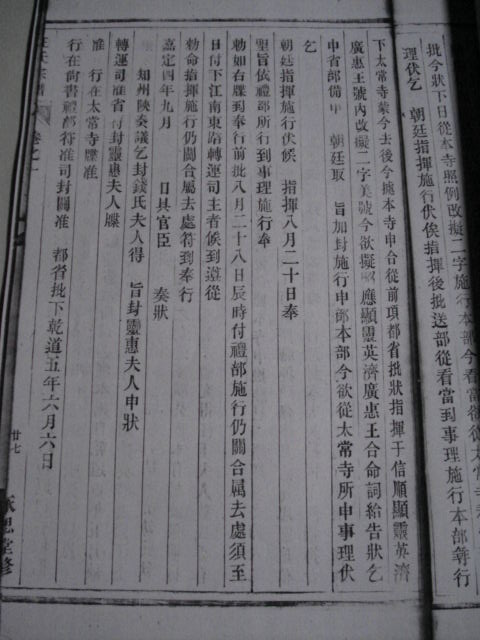 批今狀下日從本寺照例改擬二字施行本今看當欲從太常寺
理伏乞 朝廷指揮施行伏俟指揮後批送部從看當到事理施行本部尋行
下太常寺蒙今去後今據本寺申合從前項都省批狀指揮于信順顯靈英濟
廣惠王號內改擬二字美號今欲擬昭應顯靈英濟廣惠王合命詞給告狀乞
申省部備申 朝廷取 旨加封施行申部本部今欲從太常寺所申事理伏
乞
朝廷指揮施行伏候 指揮八月二十日奉
聖旨依禮部所行到事理施行奉
勅如右牒到奉行前批八月二十八日辰時付禮部施行仍關合屬去處須至
日付下江南東路轉運司主者候到遵從
勅命指揮施行仍關合屬去處符到奉行
嘉定四年九月 日具官臣 奏狀
知州陝奏議乞封錢氏夫人得 旨封靈惠夫人申狀
轉運司准省付封靈惠夫人牒
准 行在太常寺牒准
行在尚書禮部符准司封關准 都省批下乾道五年六月六日
氏宗譜 卷之一 廿七 永思堂修